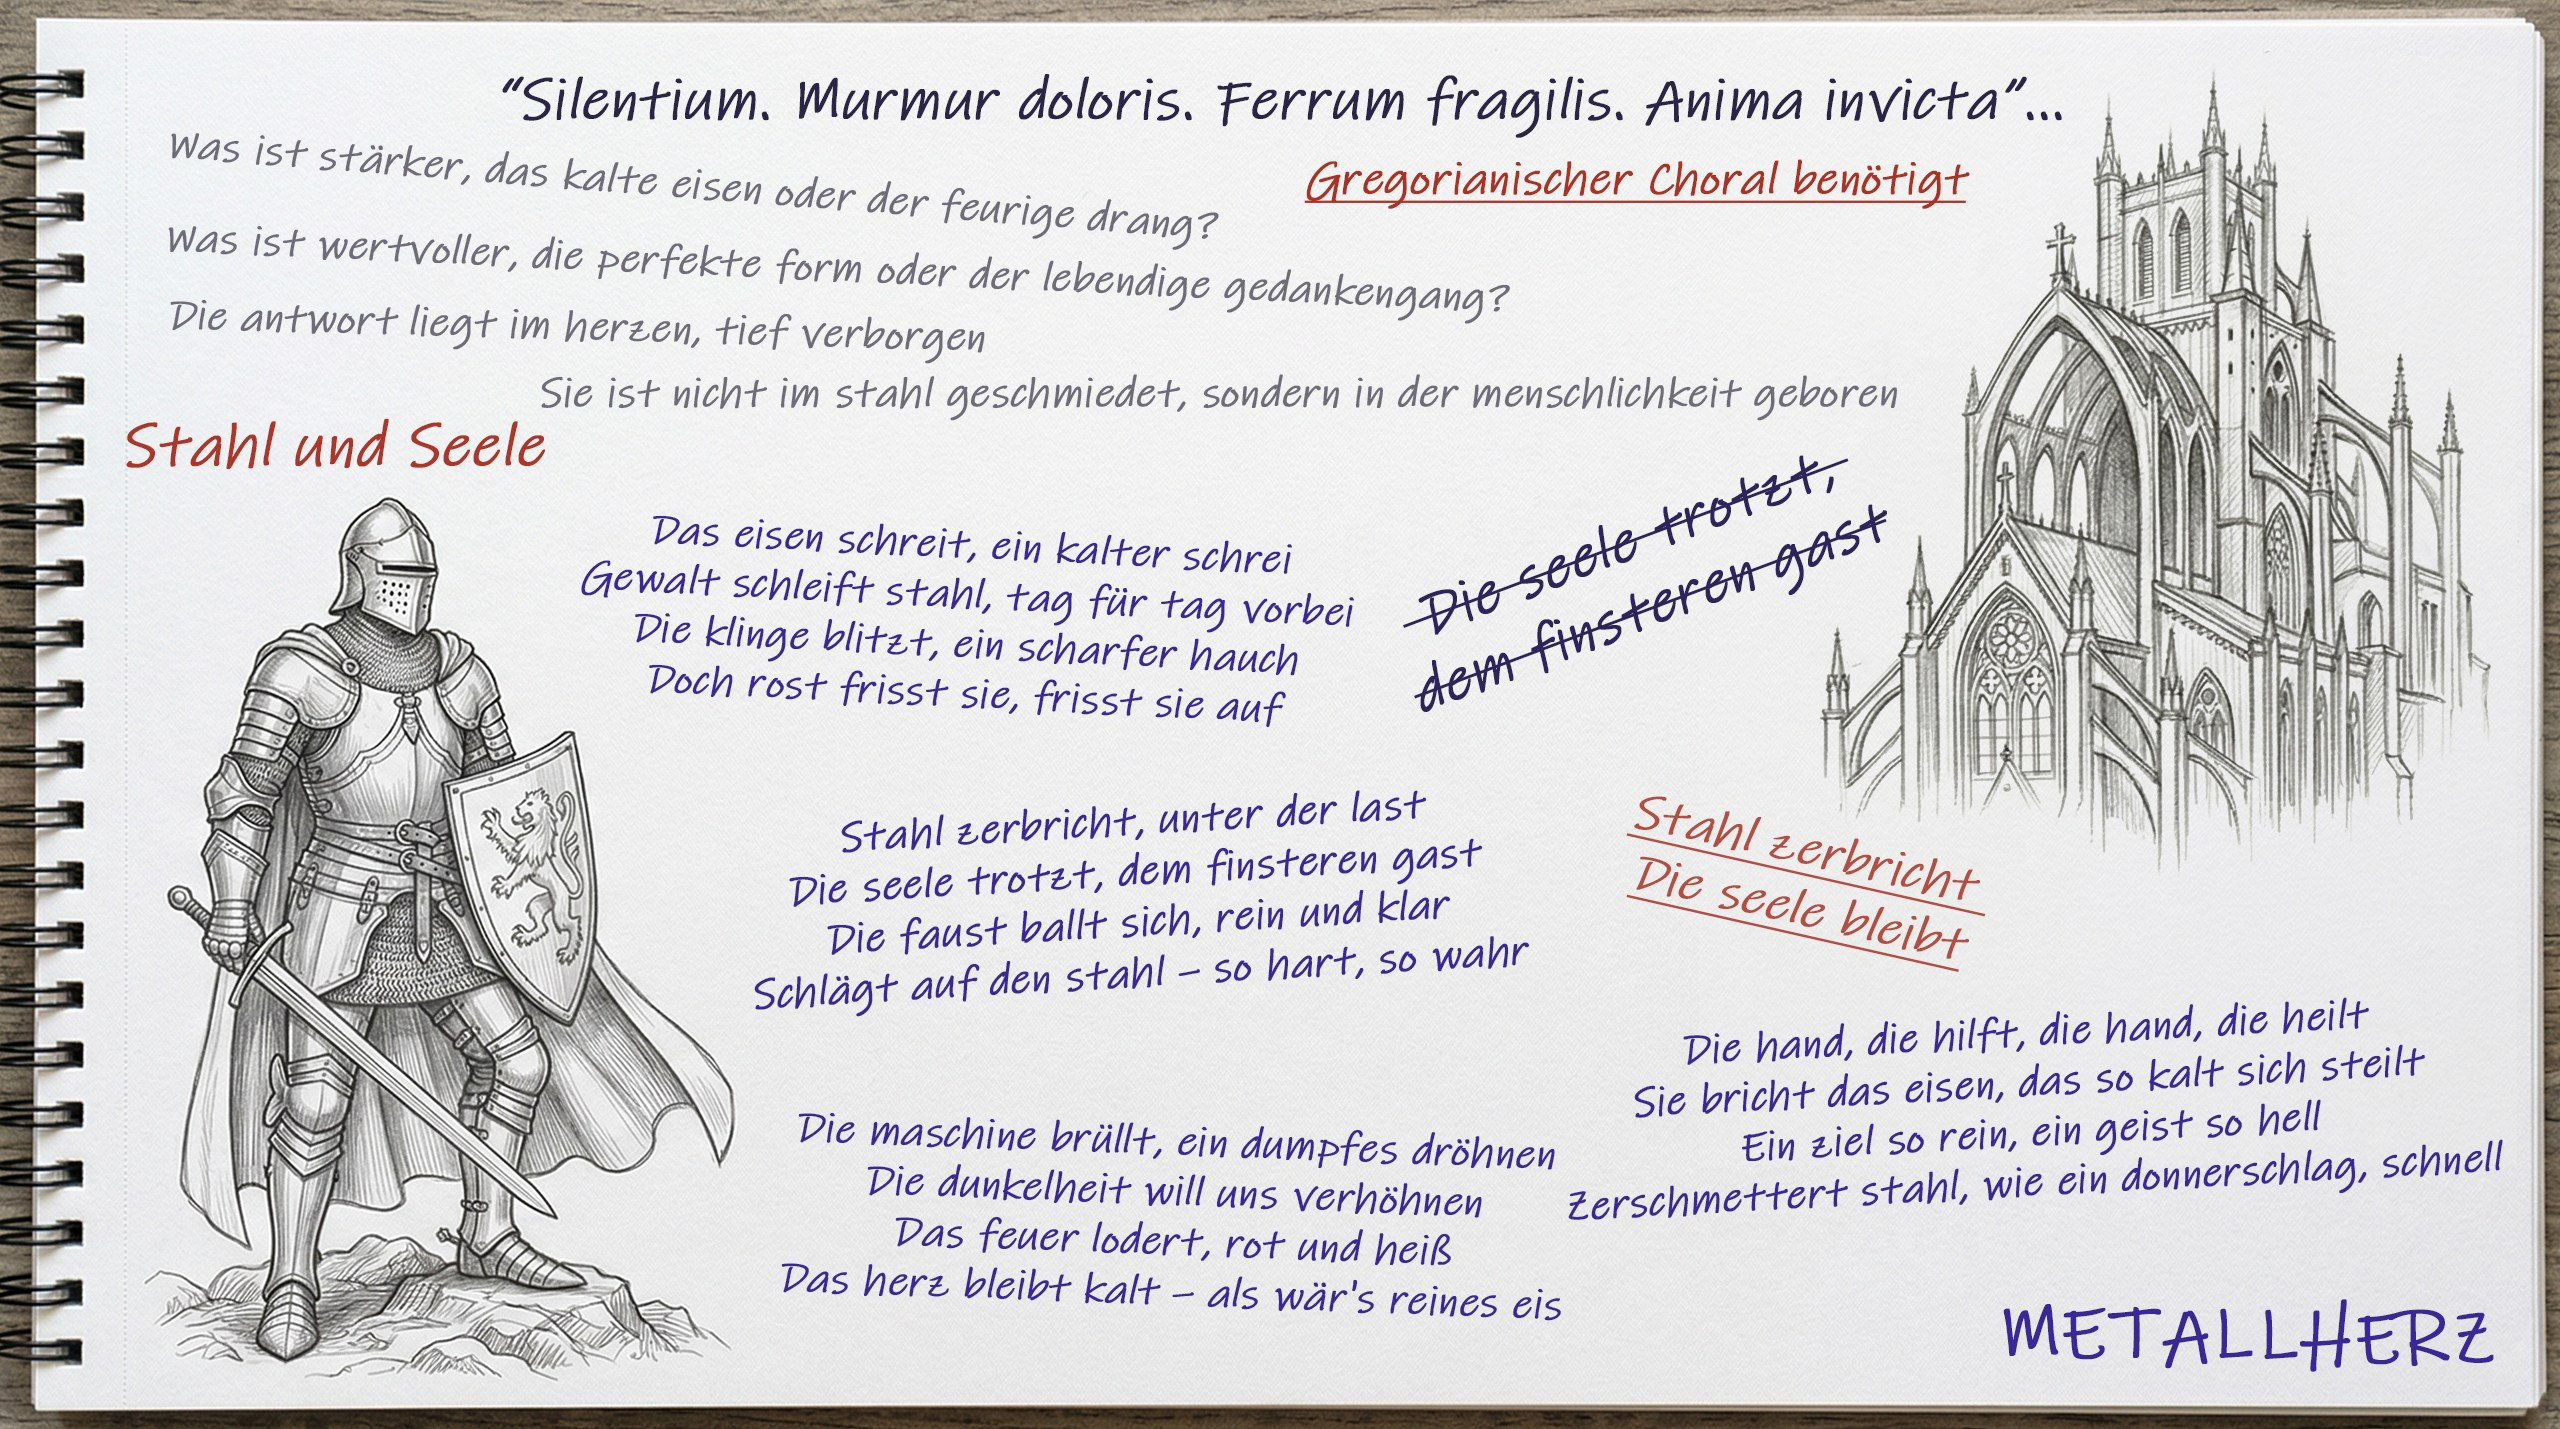 “Silentium. Murmur doloris. Ferrum fragilis. Anima invicta”...
Gregorianischer Choral benötigt
Was ist stärker, das kalte eisen oder der feurige drang?
Was ist wertvoller, die perfekte form oder der lebendige gedankengang?
Die antwort liegt im herzen, tief verborgen
Sie ist nicht im stahl geschmiedet, sondern in der menschlichkeit geboren
Stahl und Seele
Das eisen schreit, ein kalter schrei
Gewalt schleift stahl, tag für tag vorbei
Die klinge blitzt, ein scharfer hauch
Doch rost frisst sie, frisst sie auf
Die seele trotzt,
dem finsteren gast
Stahl zerbricht, unter der last
Die seele trotzt, dem finsteren gast
Die faust ballt sich, rein und klar
Schlägt auf den stahl – so hart, so wahr
Stahl zerbricht
Die seele bleibt
Die maschine brüllt, ein dumpfes dröhnen
Die dunkelheit will uns verhöhnen
Das feuer lodert, rot und heiß
Das herz bleibt kalt – als wär's reines eis
Die hand, die hilft, die hand, die heilt
Sie bricht das eisen, das so kalt sich steilt
Ein ziel so rein, ein geist so hell
Zerschmettert stahl, wie ein donnerschlag, schnell
METALLHERZ